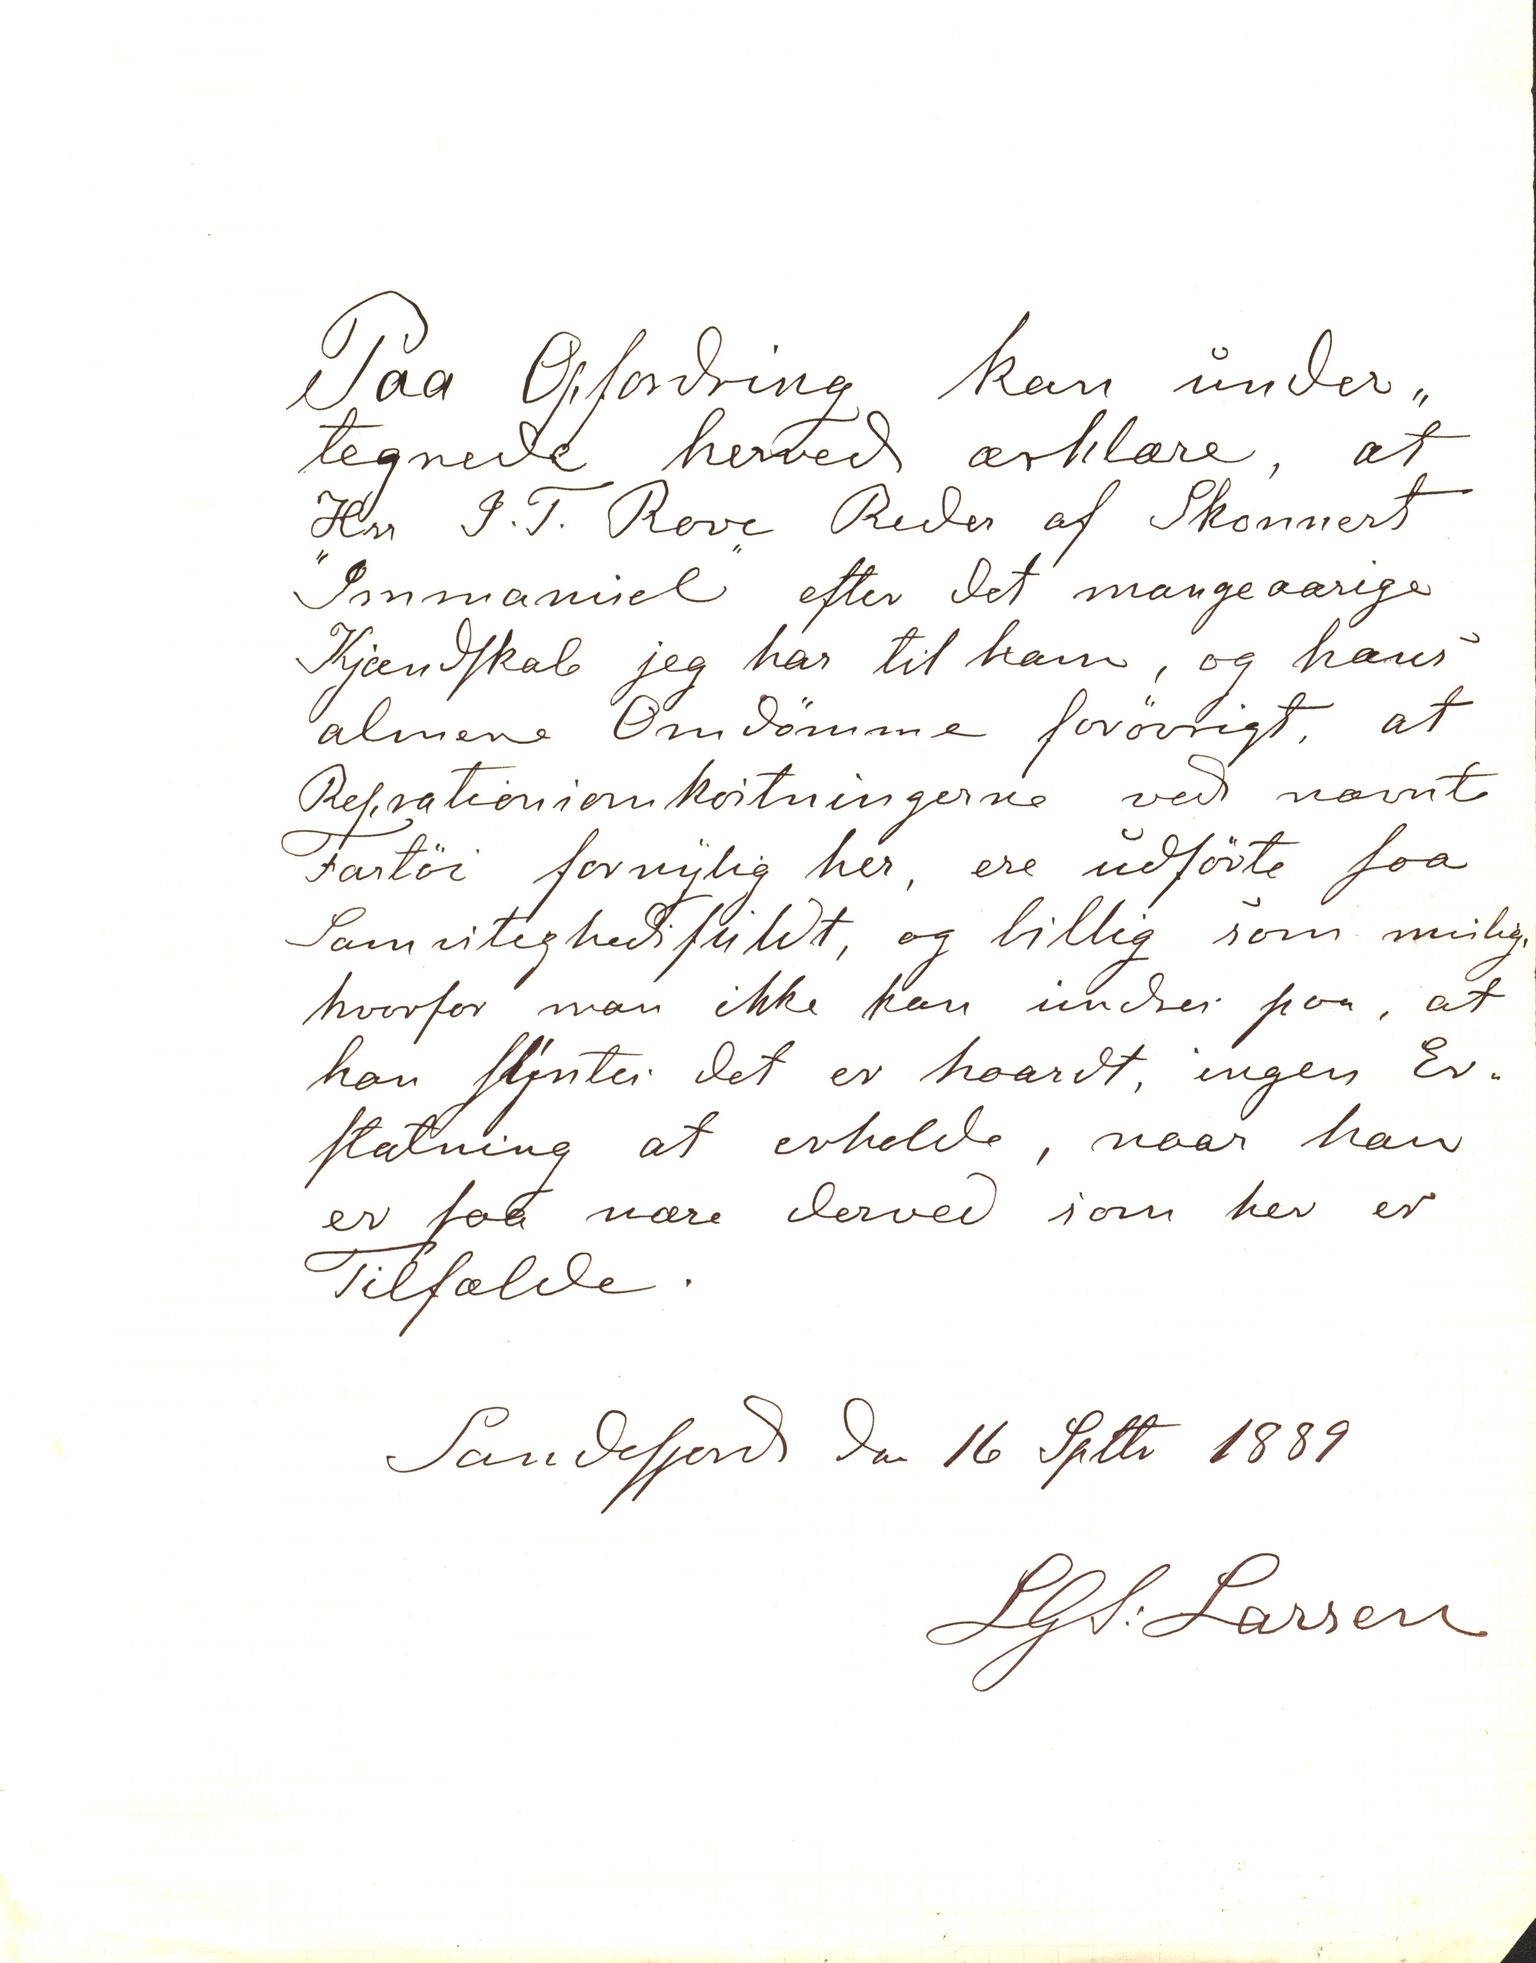 Paa Opfordring kan under„
tegnede herved ærklære, at
Hrr I. T. Rove Reder af Skonnert
"Immanuel" efter det mangeaarige
Kjændskab jeg har til ham, og hans
almene Omdömme forövrigt, at
Reprationsomkostningerne ved nævnte
Fartöi fornylig her, ere udförte saa
Samviteghedsfuldt, og billig som mulig,
hvorfor man ikke kan undres paa, at
han syntes det er haardt, ingen Er„
statning at erholde, naar han
er saa nære derved som her er
Tilfælde.
Sandefjord den 16 Sptbr 1889
L G S: Larsen